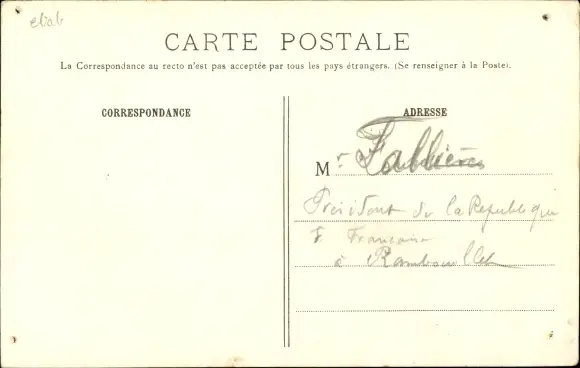 eliab
CARTE POSTALE
La Correspondance au recto n'est pas acceptée par tous les pays étrangers. (Se renseigner à la Poste).
CORRESPONDANCE
ADRESSE
Mr Fallières
Président de la République
F Française
à Rambouillet